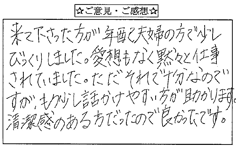 ☆ご意見・ご感想☆
来て下さった方が年配ご夫婦の方で少し
びっくりしました。愛想もなく黙々と仕事
されていました。ただそれで十分なので
すが、もう少し話かけやすい方が助かります。
清潔感のある方だったので良かったです。